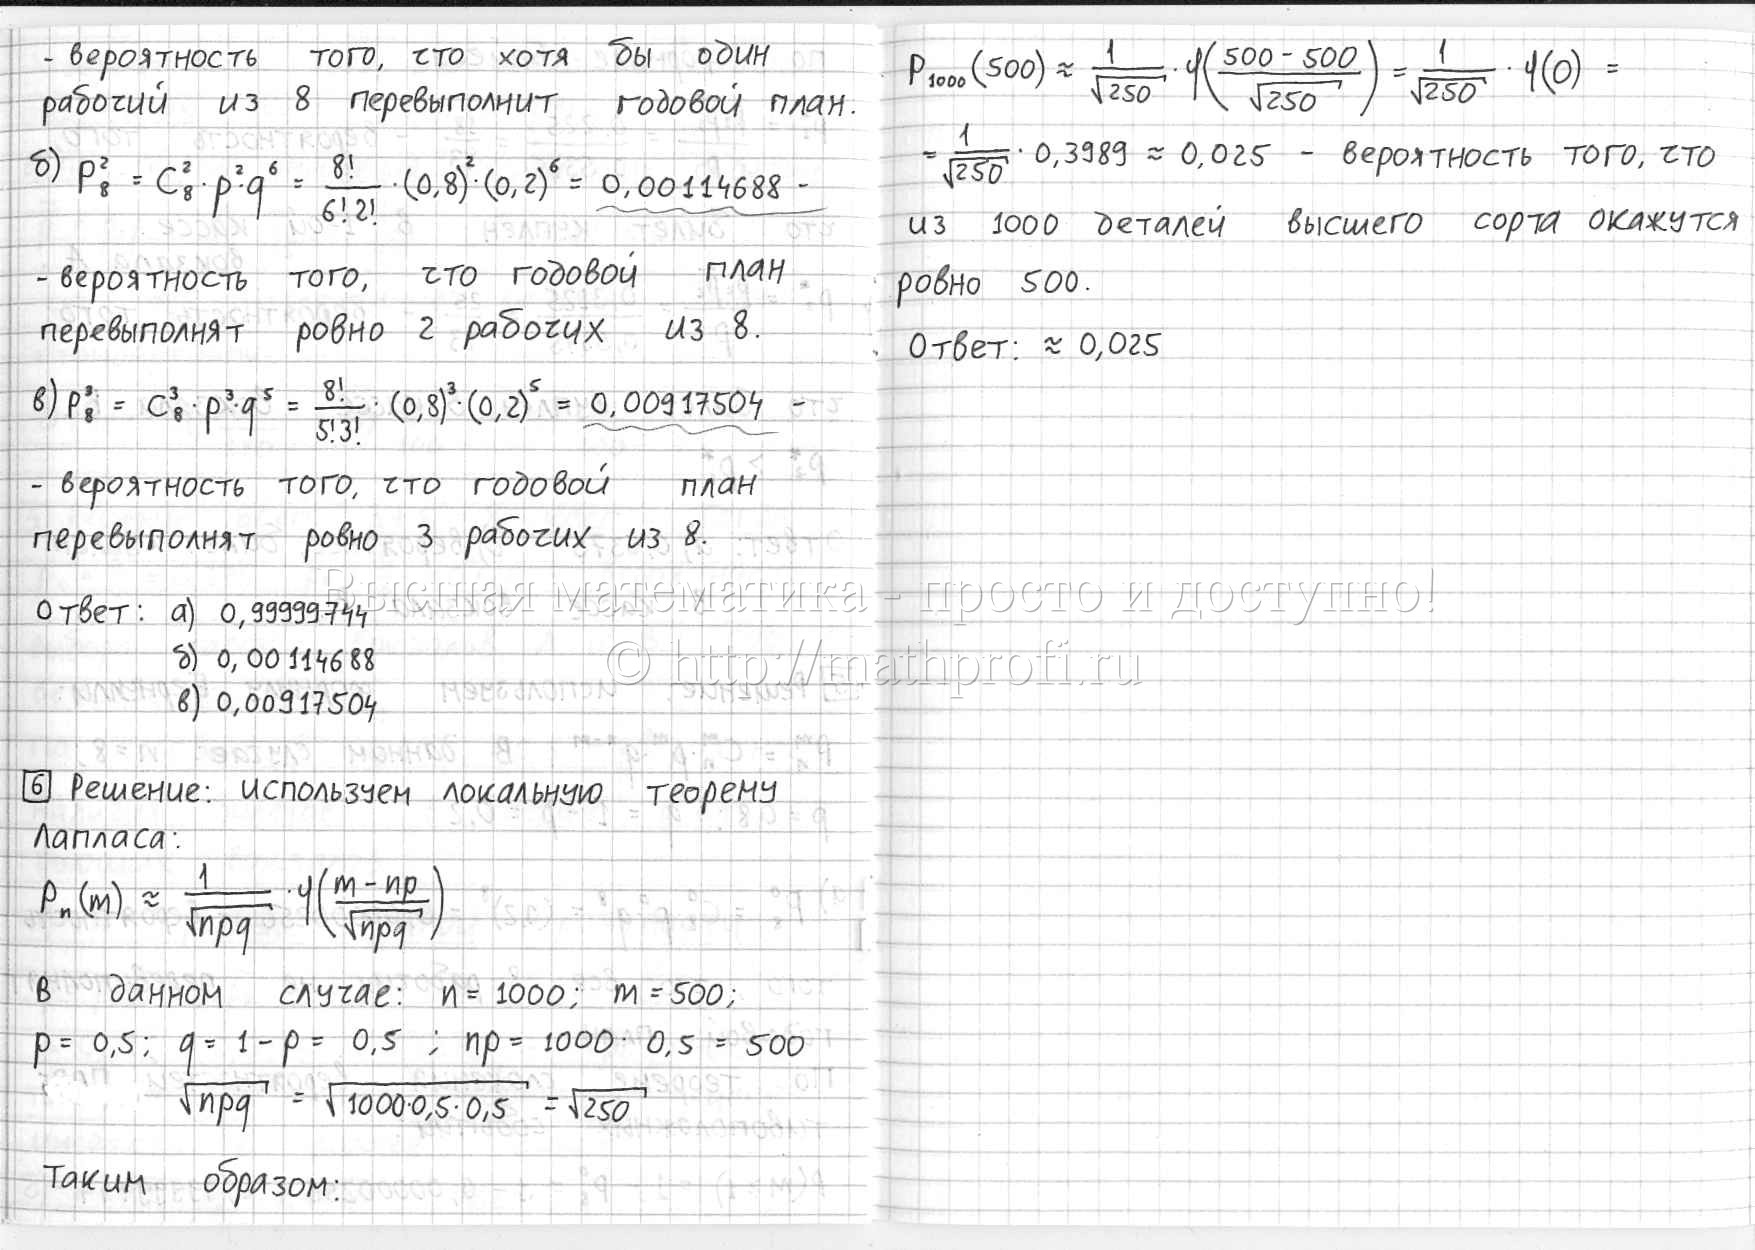 - вероятность того, что хотя бы один
рабочий из 8 перевыполнит годовой план.
б) P₈² = C₈² · p² · q⁶ = 8!/(6!2!) · (0,8)² · (0,2)⁶ = 0,00114688 -
- вероятность того, что годовой план
перевыполнят ровно 2 рабочих из 8.
в) P₈³ = C₈³ · p³ · q⁵ = 8!/(5!3!) · (0,8)³ · (0,2)⁵ = 0,00917504 -
- вероятность того, что годовой план
перевыполнят ровно 3 рабочих из 8.
Ответ: а) 0,99999744
б) 0,00114688
в) 0,00917504
6 Решение: используем локальную теорему
Лапласа:
Pₙ(m) ≈ 1/√npq · φ((m - np)/√npq)
В данном случае: n = 1000; m = 500;
p = 0,5; q = 1 - p = 0,5 ; np = 1000 · 0,5 = 500
√npq = √1000·0,5·0,5 = √250
Таким образом:
P₁₀₀₀(500) ≈ 1/√250 · φ((500 - 500)/√250) = 1/√250 · φ(0) =
= 1/√250 · 0,3989 ≈ 0,025 - вероятность того, что
из 1000 деталей высшего сорта окажутся
ровно 500.
Ответ: ≈ 0,025
Высшая математика - просто и доступно!
© http://mathprofi.ru